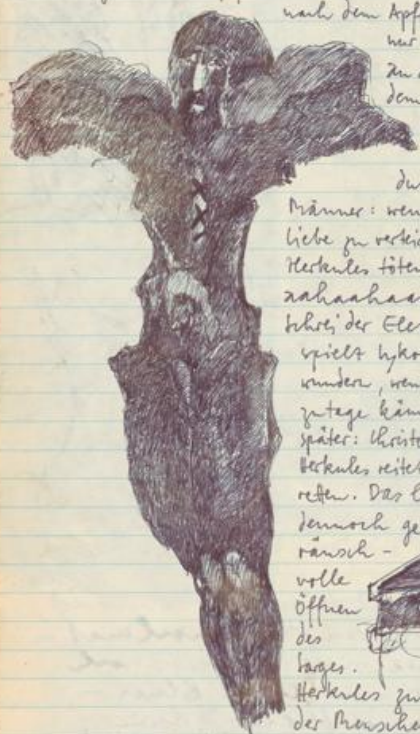 nach dem Apf
nur
dem
du
Männer: wen
liebe zu vertei
Herkules töten
aahaahaa
schrei der Ele
spielt Lyko
wundern, wen
zutage käm
später: Christo
Herkules reitet
retten. Das
dennoch ge
räusch-
volle
Öffnen
des
Sarges.
Herkules zu
der Mensche